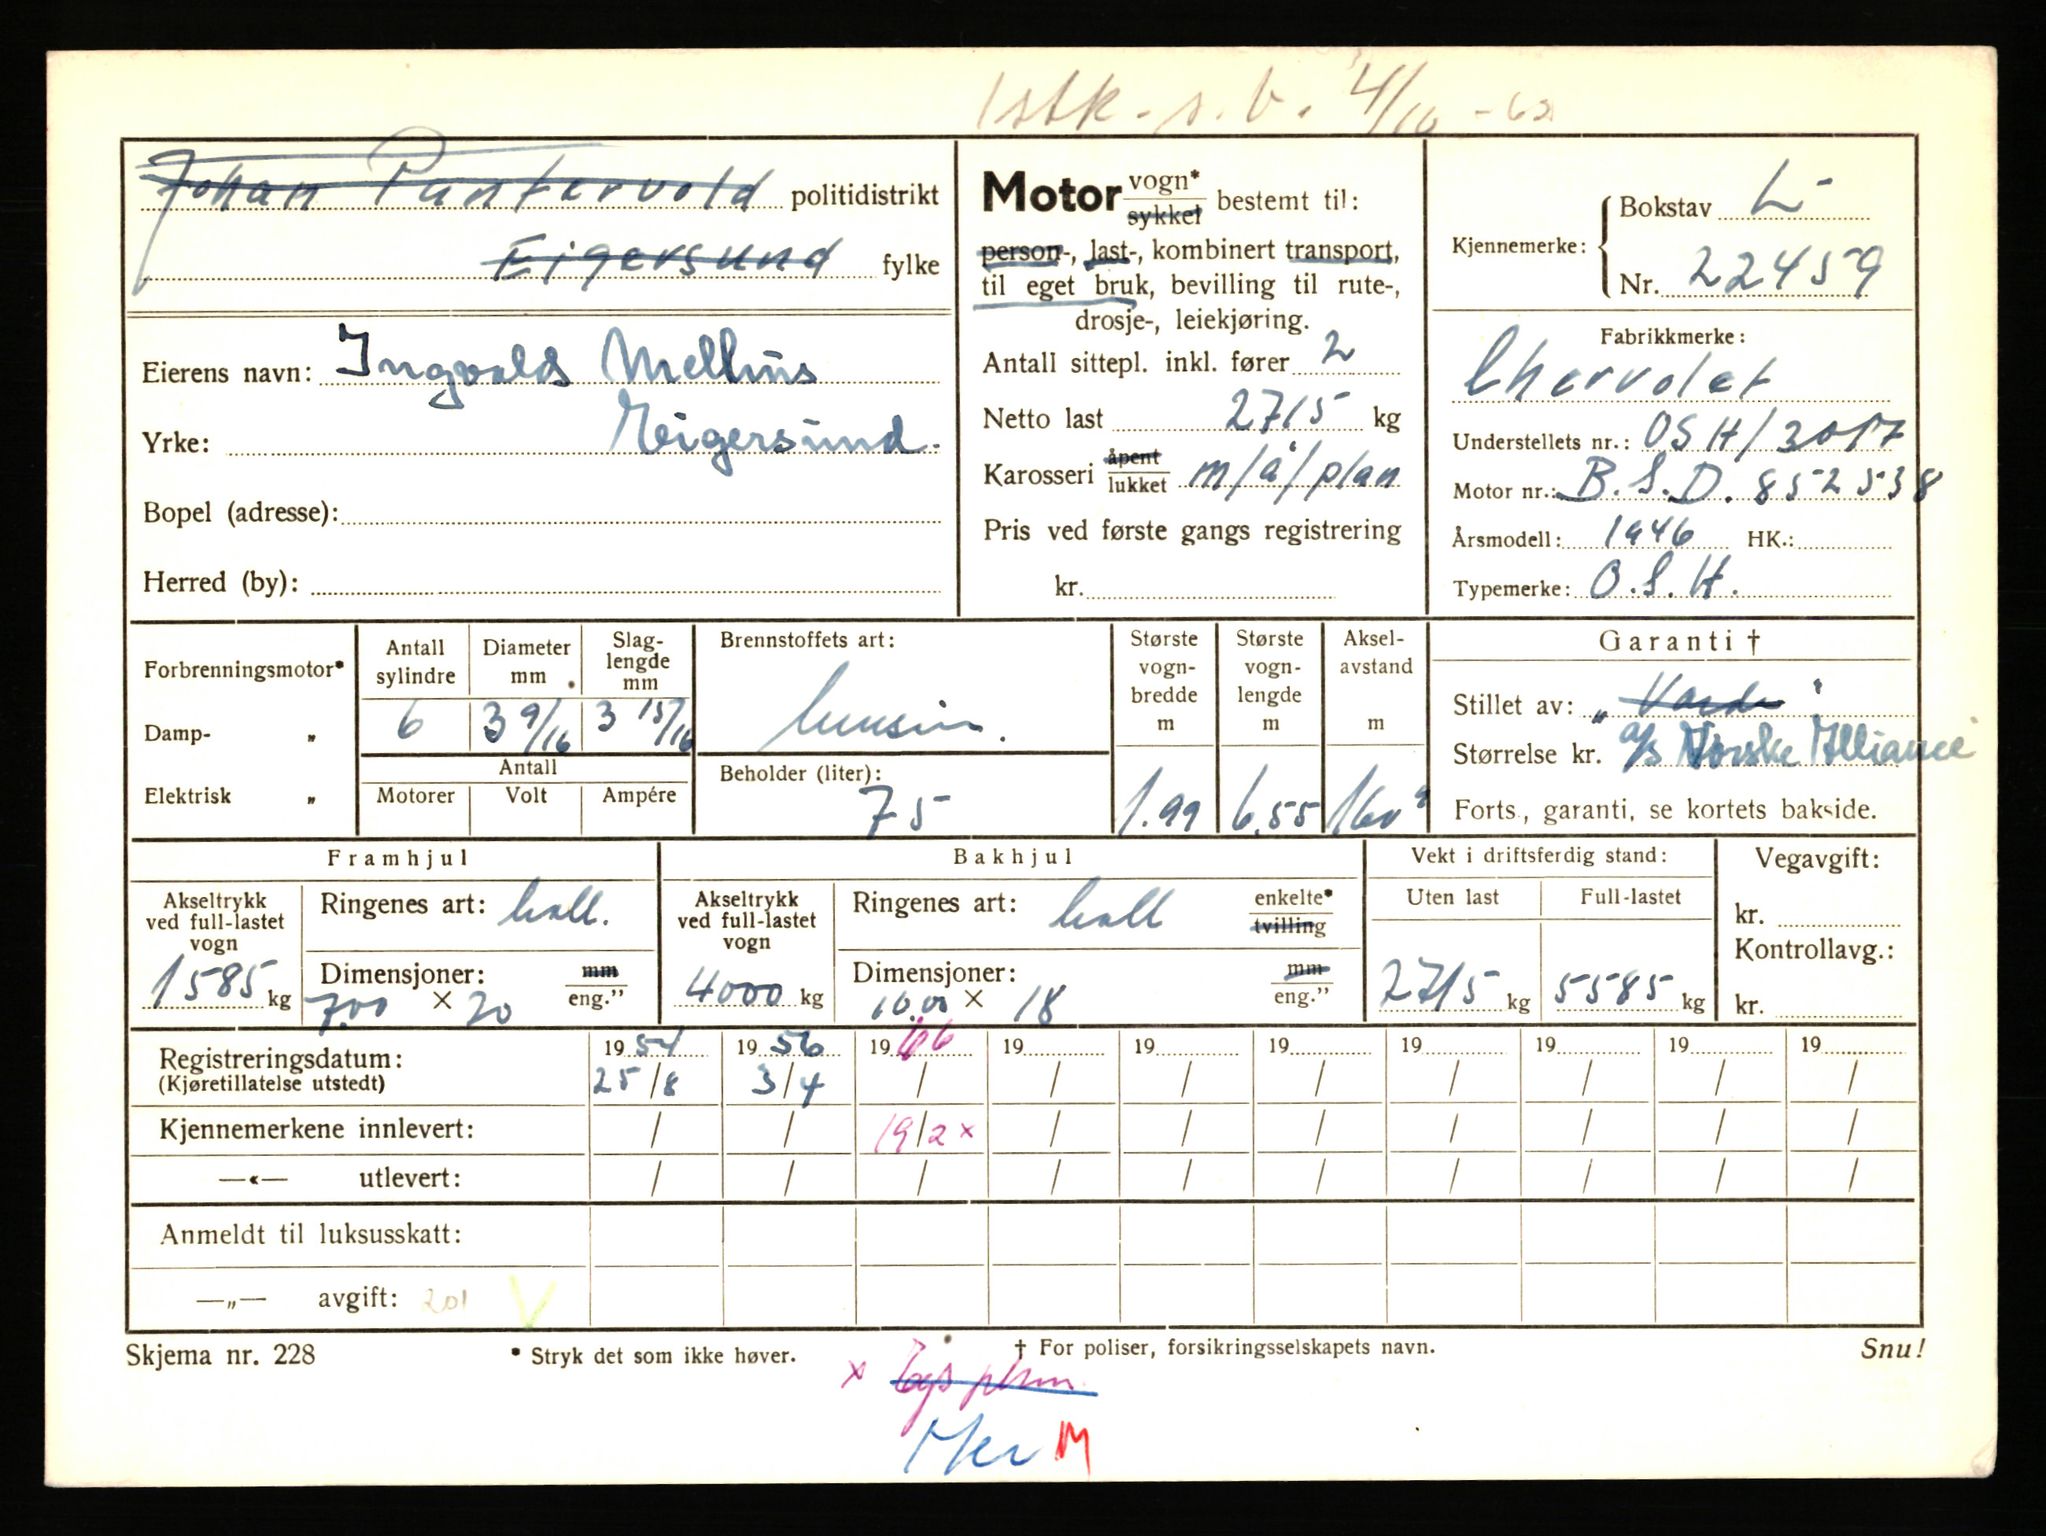 1 stk. s.b. 4/10 - 62
Johan Pantervold politidistrikt
Eigersund fylke
Eierens navn: Ingvald Mellus
Yrke: Eigersund.
Bopel (adresse):
Herred (by):
Motor vogn* sykkel bestemt til:
person-, last-, kombinert transport,
til eget bruk, bevilling til rute-,
drosje-, leiekjøring.
Antall sittepl. inkl. fører 2
Netto last 2715 kg
Karosseri åpent lukket m/å/plan
Pris ved første gangs registrering
kr.
Kjennemerke: Bokstav L-
Nr. 22459
Fabrikkmerke:
Chervolet
Understellets nr.: OSH/3017
Motor nr.: B.S.D. 852538
Årsmodell: 1946 HK.:
Typemerke: O.S.H.
Forbrenningsmotor*
Damp- „
Elektrisk „
Antall sylindre
6
Diameter mm
3 9/16
Slag-
lengde
mm
3 15/16
Antall
Motorer Volt Ampére
Brennstoffets art:
bensin.
Beholder (liter):
75
Største
vogn-
bredde
m
1.99
Største
vogn-
lengde
m
6.55
Aksel-
avstand
m
160"
Garanti †
Stillet av: „Varde"
Størrelse kr. a/s Norske Alliance
Forts., garanti, se kortets bakside.
Framhjul
Akseltrykk
ved full-lastet
vogn
1585 kg
Ringenes art: ball.
Dimensjoner: mm
7.00 × 20 eng."
Bakhjul
Akseltrykk
ved full-lastet
vogn
4000 kg
Ringenes art: ball enkelte* tvilling
Dimensjoner: mm
10.00 × 18 eng."
Vekt i driftsferdig stand:
Uten last Full-lastet
2715 kg 5585 kg
Vegavgift:
kr.
Kontrollavg.:
kr.
Registreringsdatum: 1954 1956 1966 19 19 19 19 19 19 19
(Kjøretillatelse utstedt) 25/8 3/4 / / / / / / / /
Kjennemerkene innlevert: / / 19/2 x / / / / / / /
—«— utlevert: / / / / / / / / / /
Anmeldt til luksusskatt:
—„— avgift: 201 V
Skjema nr. 228 * Stryk det som ikke høver. † For poliser, forsikringsselskapets navn. Snu!
x
M